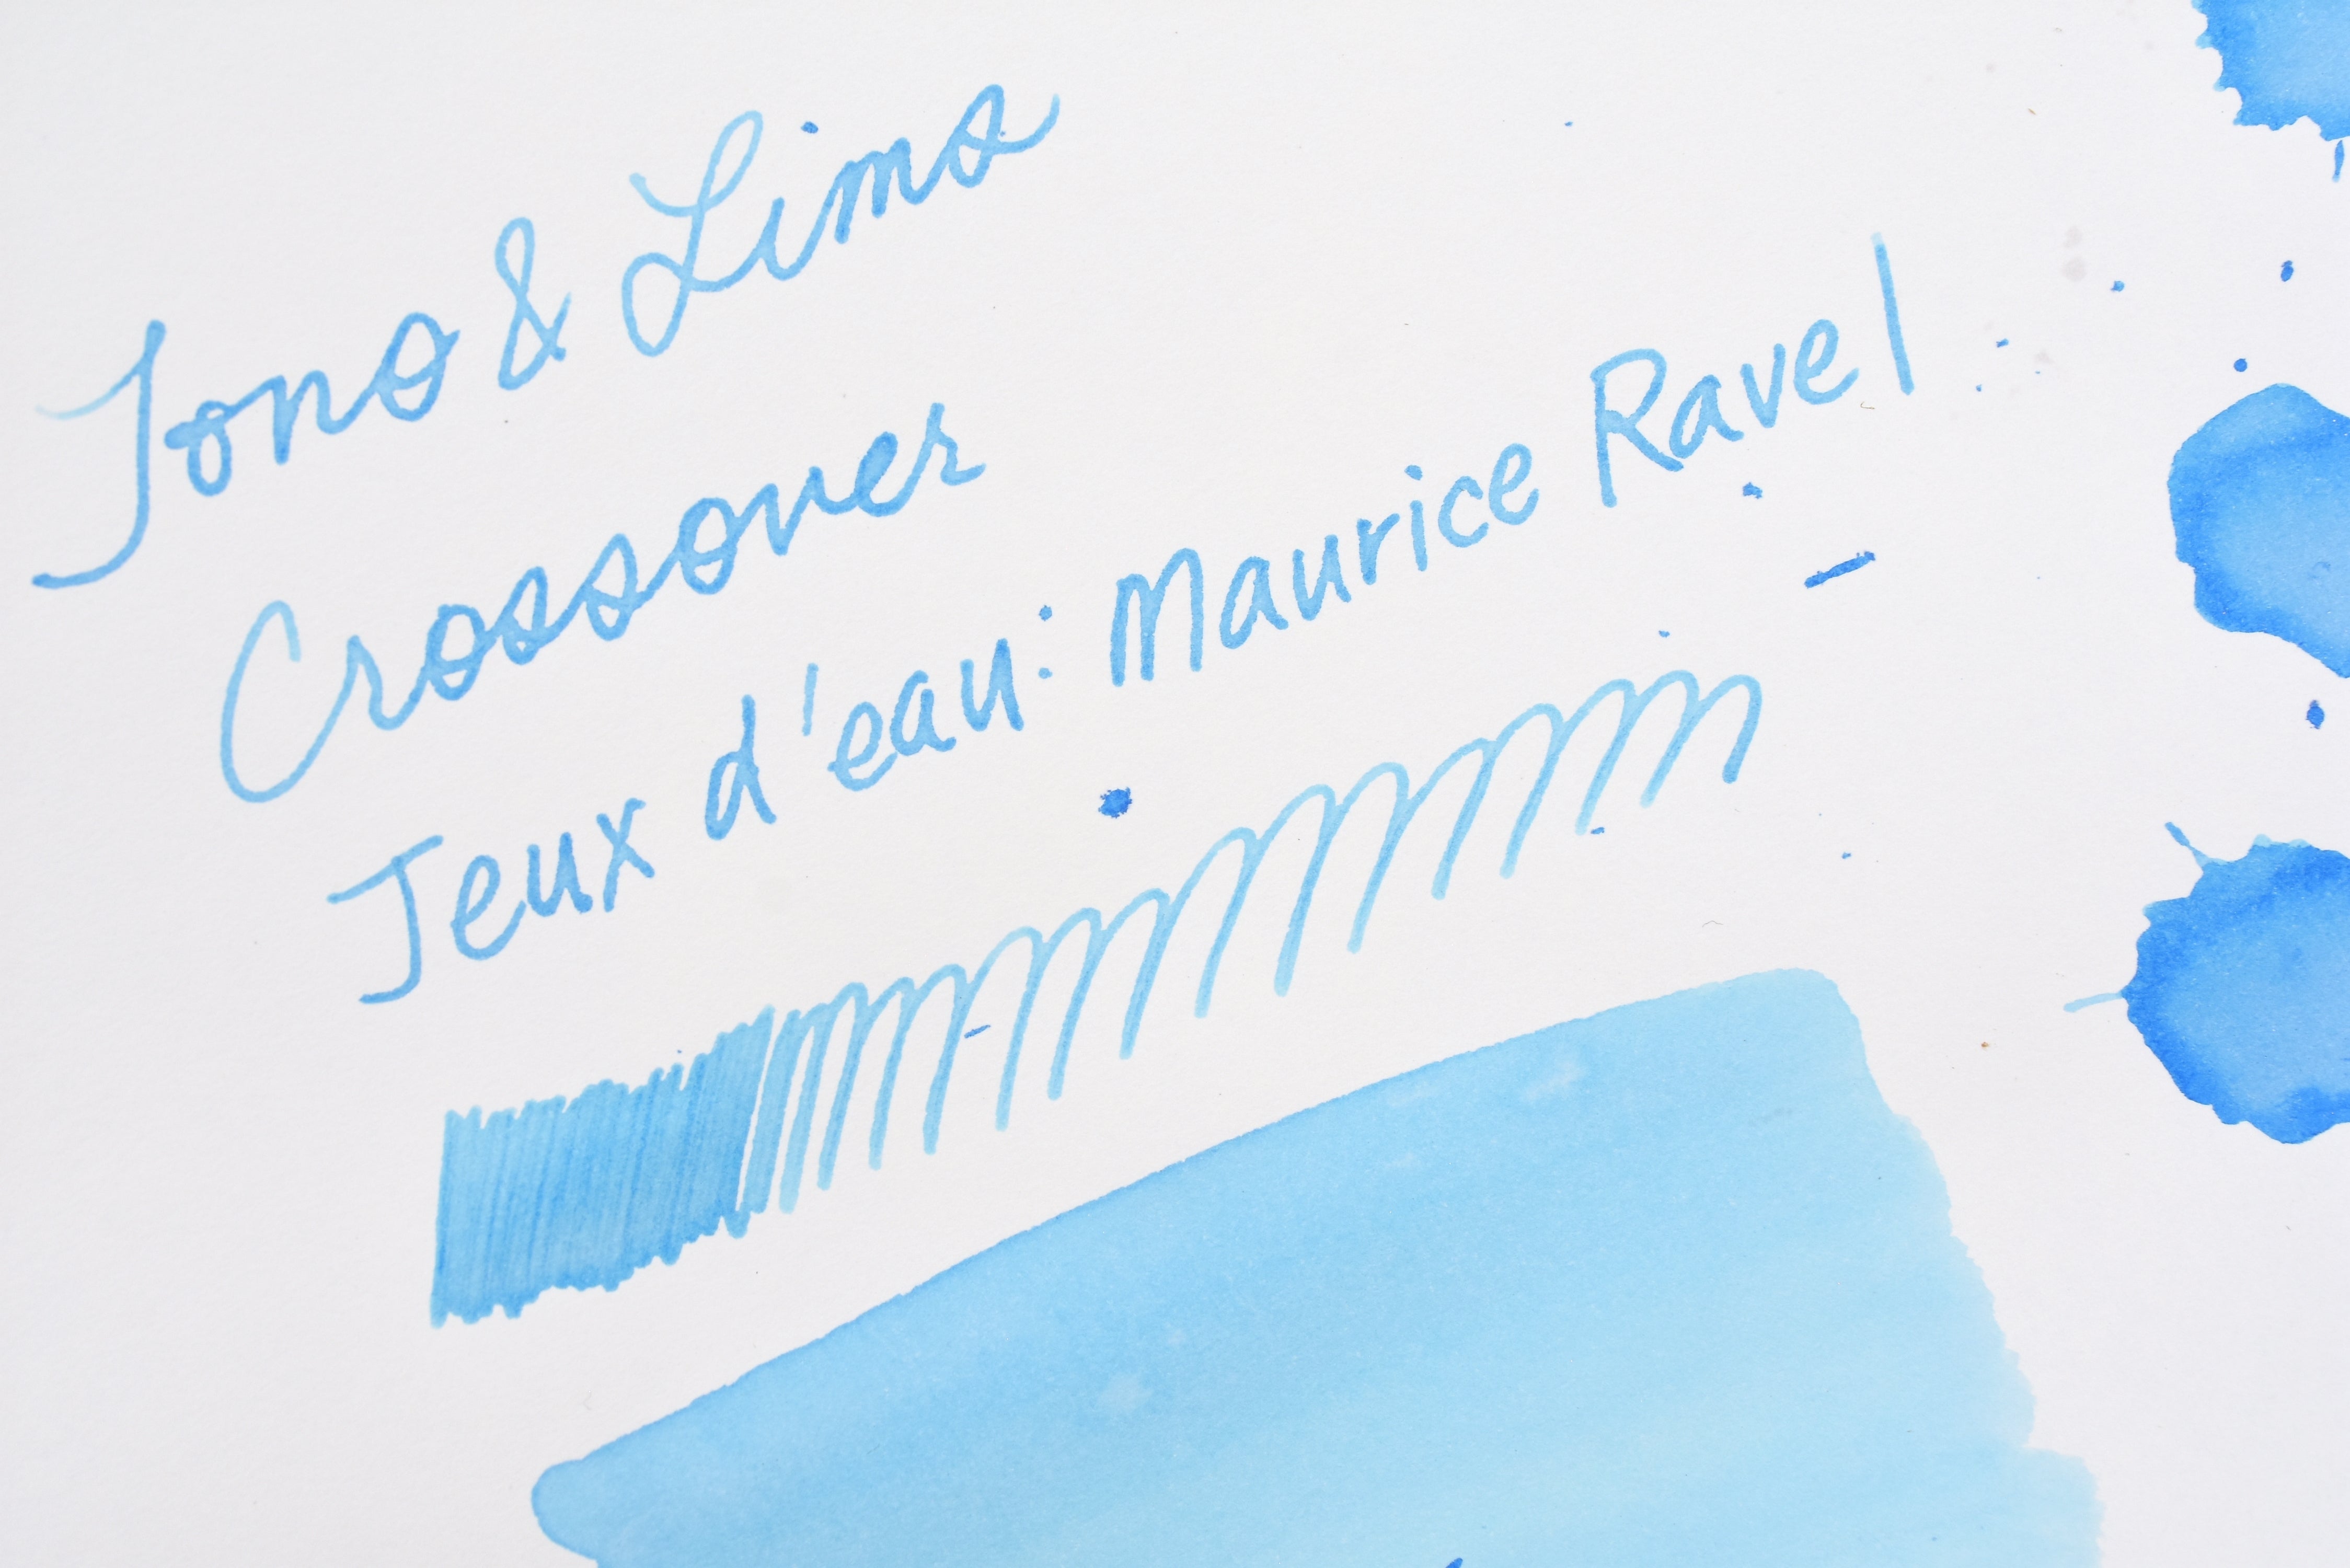 Tono & Lims
Crossover
Jeux d'eau: Maurice Ravel